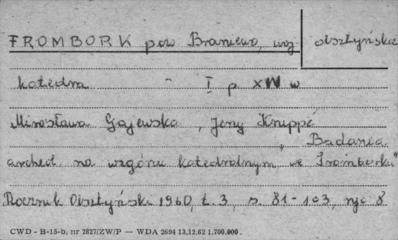 FROMBORK pow Braniewo, woj olsztyńskie
katedra - I p XIV w
Mirosława Gajewska, Jerzy Kruppé
"Badania
archeol. na wzgórzu katedralnym we Fromborku"
Rocznik Olsztyński 1960, t. 3, s. 81-103, ryc 8
CWD - B-15-b, nr 2827/ZW/P — WDA 2694 13.12.62 1.700.000.